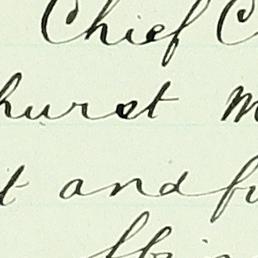 Chief C
hurst M
t and fu